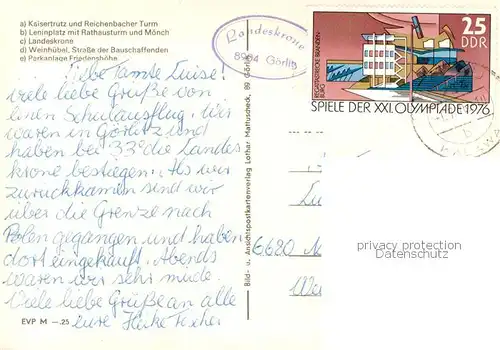 a) Kaisertrutz und Reichenbacher Turm
b) Leninplatz mit Rathausturm und Mönch
c) Landeskrone
d) Weinhübel, Straße der Bauschaffenden
e) Parkanlage Friedenshöhe
Liebe Tante Luise!
viele liebe Grüße von
einen Schulausflug. Wir
waren in Görlitz und
haben bei 33° die Landes
krone bestiegen. Als wir
zurückkamen sind wir
über die Grenze nach
Polen gegangen und haben
dort eingekauft. Abends
waren wir sehr müde.
Viele liebe Grüße an alle
eure Heike
EVP M —.25
Bild- u. Ansichtspostkartenverlag Lothar Mattuscheck, 89 Görlitz
Landeskrone
8904 Görlitz
25
DDR
SPIELE DER XXI. OLYMPIADE 1976
6620
privacy protection
Datenschutz